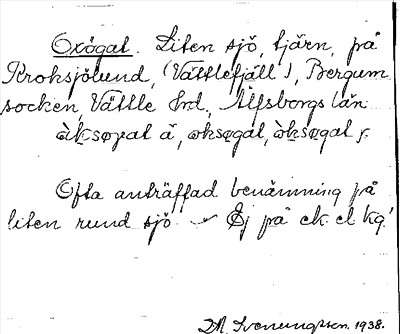 Oxögat. Liten sjö, tjärn, på
Kroksjölund, (Vättlefjäll), Bergum
socken, Vättle hd., Älfsborgs län
Ofta anträffad benämning på
liten rund sjö. Ej på ek. el kg!
1938.